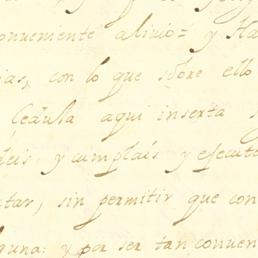 conveniente alivio: y Ha
ias, con lo que sobre ello
Cedula aqui inserta
deis y cumplais y efecute
tar, sin permitir que con
guna: y por ser tan conven